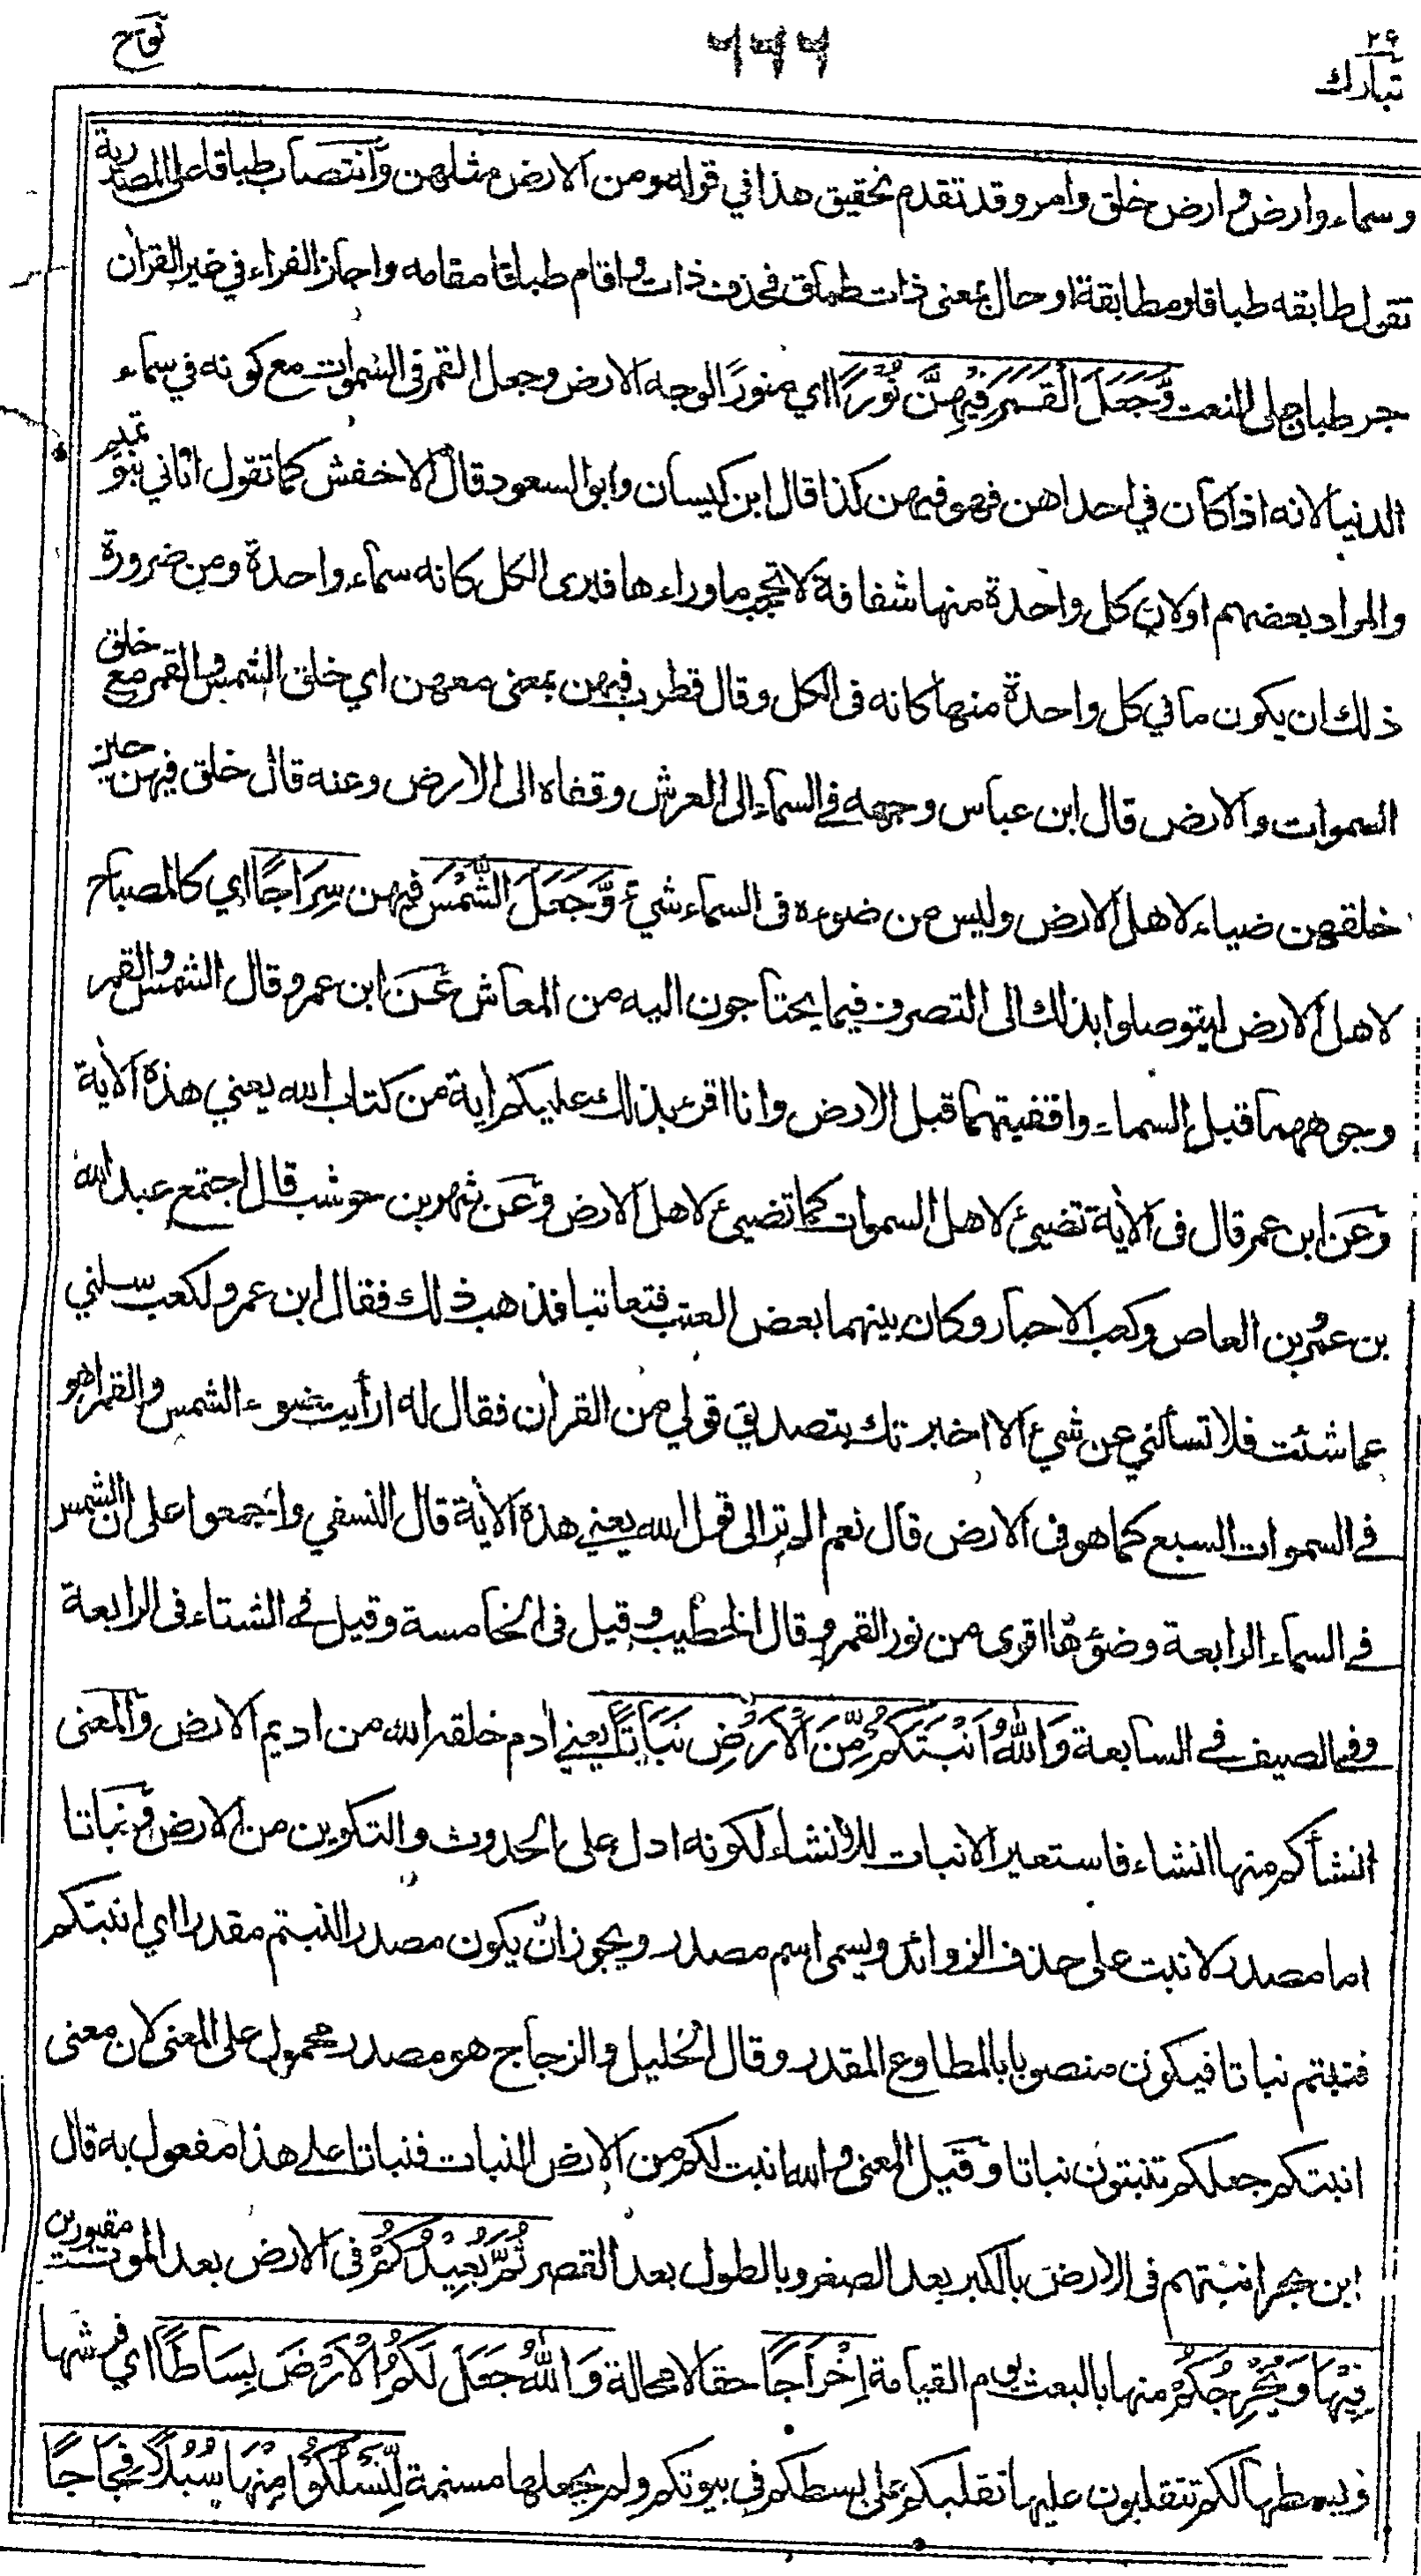 ٢٩
تبارك
نوح
وسماء وارض وارض خلق وامر وقد تقدم تحقيق هذا في قوله ومن الارض مثلهن وانتصاب طباقا على المصدرية
تقول طابقه طباقا ومطابقة او حال بمعنى ذات طباق فحذف ذات واقام طباقا مقامه واجاز الفراء في غير القرآن
جر طباق على النعت وَّجَعَلَ الْقَمَرَ فِيْهِنَّ نُوْرًا اي منورا لوجه الارض وجعل القمر فى السموات مع كونه في سماء
الدنيا لانه اذا كان في احداهن فهو فيهن كذا قال ابن كيسان وابو السعود قال الاخفش كما تقول اتاني بنو تميم
والمراد بعضهم اولان كل واحدة منها شفافة لا تحجب ما وراءها فيرى الكل كانه سماء واحدة ومن ضرورة
ذلك ان يكون ما في كل واحدة منها كانه فى الكل وقال قطرب فيهن بمعنى معهن اي خلق الشمس والقمر مع خلق
السموات والارض قال ابن عباس وجهه في السماء الى العرش وقفاه الى الارض وعنه قال خلق فيهن حين
خلقهن ضياء لاهل الارض وليس من ضوءه فى السماء شيء وَّجَعَلَ الشَّمْسَ فيهن سِرَاجًا اي كالمصباح
لاهل الارض ليتوصلوا بذلك الى التصرف فيما يحتاجون اليه من المعاش عن ابن عمرو قال الشمس والقمر
وجوههما قبل السماء واقفيتهما قبل الارض وانا اقرء بذلك عليكم اية من كتاب الله يعني هذه الأية
وعن ابن عمر قال فى الأية تضيئ لاهل السموات كما تضيئ لاهل الارض وعن شهر بن حوشب قال اجتمع عبد الله
بن عمرو بن العاص وكعب الاحبار وكان بينهما بعض العتب فتعاتبا فذهب ذلك فقال ابن عمرو لكعب سلني
عما شئت فلا تسألني عن شيء الا اخبرتك بتصديق قولي من القرأن فقال له ارأيت ضوء الشمس والقمر اهو
في السموات السبع كما هو فى الارض قال نعم الم تر الى قول الله يعني هذه الأية قال النسفي واجمعوا على ان الشمس
في السماء الرابعة وضوءها اقوى من نور القمر وقال الخطيب وقيل فى الخامسة وقيل في الشتاء فى الرابعة
وفي الصيف في السابعة وَاللّٰهُ اَنْبَتَكُمْ مِّنَ الْاَرْضِ نَبَاتًا يعني أدم خلقه الله من اديم الارض والمعنى
انشأكم منها انشاء فاستعير الانبات للانشاء لكونه ادل على الحدوث والتكوين من الارض ونباتا
اما مصدر لانبت على حذف الزوائد ويسمى اسم مصدر ويجوز ان يكون مصدرا لنبتم مقدرا اي انبتكم
فنبتم نباتا فيكون منصوبا بالمطاوع المقدر وقال الخليل والزجاج هو مصدر محمول على المعنى لان معنى
انبتكم جعلكم تنبتون نباتا وقيل المعنى والله انبت لكم من الارض النبات فنباتا على هذا مفعول به قال
ابن بحر انبتهم فى الارض بالكبر بعد الصغر وبالطول بعد القصر ثُمَّ يُعِيْدُكُمْ فى الارض بعد الموت مقبورين
فِيْهَا وَيُخْرِجُكُمْ منها بالبعث يوم القيامة اِخْرَاجًا حقا لا محالة وَاللّٰهُ جَعَلَ لَكُمُ الْاَرْضَ بِسَاطًا اي فرشها
وبسطها لكم تتقلبون عليها تقلبكم على بسطكم في بيوتكم ولم يجعلها مسنمة لِّتَسْلُكُوْا مِنْهَا سُبُلًا فِجَاجًا